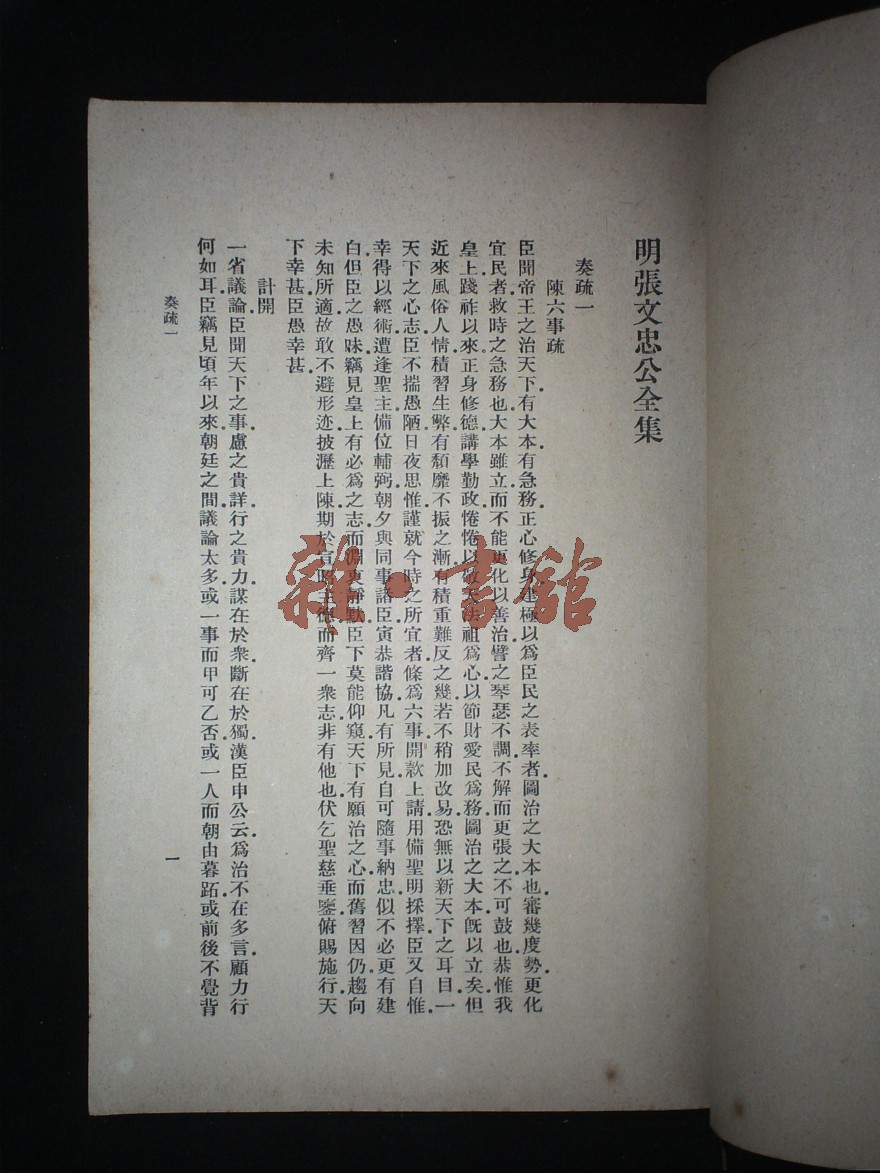 明張文忠公全集
奏疏一
陳六事疏
臣聞帝王之治天下有大本有急務正心修身建極以爲臣民之表率者圖治之大本也審幾度勢更化
宜民者救時之急務也大本雖立而不能更化以善治譬之琴瑟不調不解而更張之不可鼓也恭惟我
皇上踐祚以來正身修德講學勤政惓惓以敬天法祖爲心以節財愛民爲務圖治之大本旣以立矣但
近來風俗人情積習生弊有頹靡不振之漸有積重難反之幾若不稍加改易恐無以新天下之耳目一
天下之心志臣不揣愚陋日夜思惟謹就今時之所宜者條爲六事開款上請用備聖明採擇臣又自惟
幸得以經術遭逢聖主備位輔弼朝夕與同事諸臣寅恭諧協凡有所見自可隨事納忠似不必更有建
白但臣之愚昧竊見皇上有必爲之志而淵衷靜默臣下莫能仰窺天下有願治之心而舊習因仍趨向
未知所適故敢不避形迹披瀝上陳期於宣昭主德而齊一衆志非有他也伏乞聖慈垂鑒俯賜施行天
下幸甚臣愚幸甚
計開
一省議論臣聞天下之事慮之貴詳行之貴力謀在於衆斷在於獨漢臣申公云爲治不在多言顧力行
何如耳臣竊見頃年以來朝廷之間議論太多或一事而甲可乙否或一人而朝由暮跖或前後不覺背
奏疏一
一
雜·書館